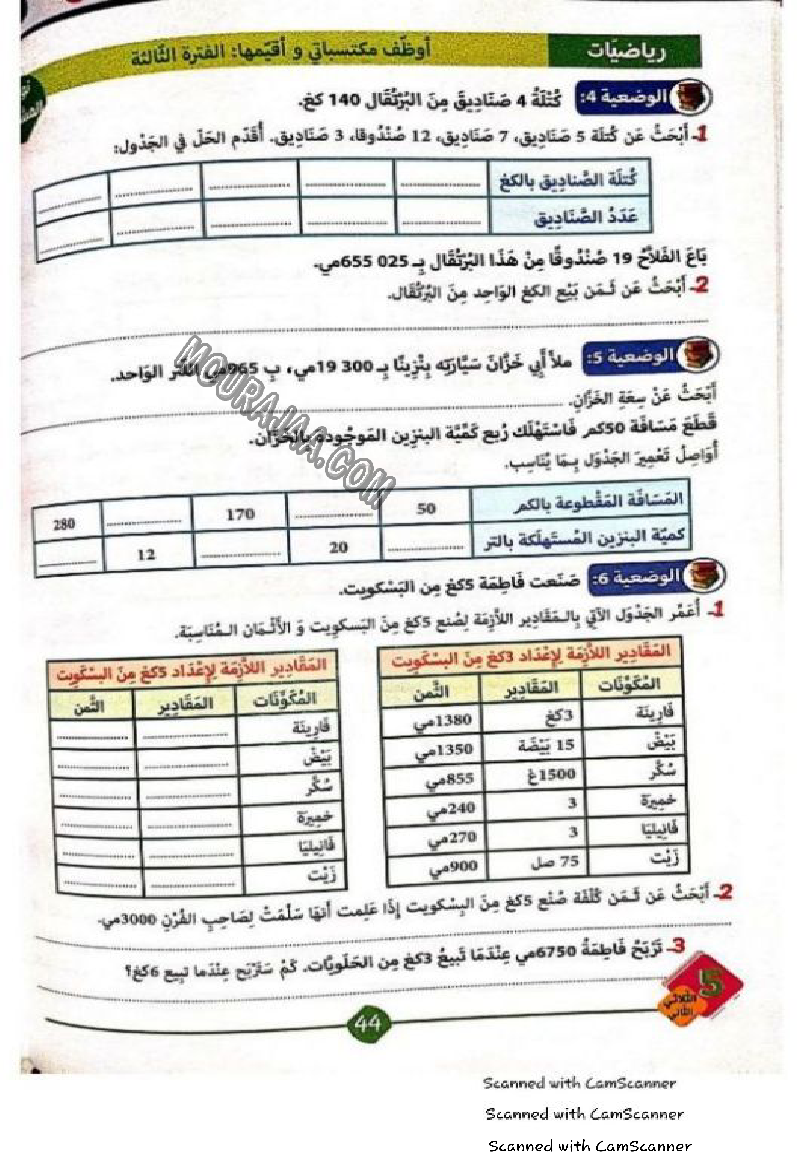 رياضيّات
أوظّف مكتسباتي و أقيّمها: الفترة الثّالثة
الوضعية 4: كُتْلَةُ 4 صَنَادِيقَ مِنَ البُرْتُقَال 140 كغ.
1- أَبْحَثُ عَن كُتلَة 5 صَنَادِيق، 7 صَنَادِيق، 12 صُنْدُوقا، 3 صَنَادِيق. أُقَدّم الحَلّ في الجَدْول:
كُتلَة الصَّنادِيق بالكغ
عَدَدُ الصَّنَادِيق
بَاعَ الفَلاَّحُ 19 صُنْدُوقًا مِنْ هَذَا البُرْتُقَال بِـ 025 655مي.
2- أَبْحَثُ عَن ثَـمَن بَيْع الكغ الوَاحِد مِنَ البُرْتُقَال.
الوضعية 5: ملأ أَبِي خَزَّانَ سَيَّارَتِه بِنْزِينًا بِـ 300 19مي، بِ 965مي اللتر الوَاحد.
أَبْحَثُ عَنْ سِعَةِ الخَزَّانِ.
قَطَعَ مَسَافَة 50كم فَاسْتَهْلَك رُبع كَمِّيَّة البنزين المَوجُودة بالخَزَّان.
أُوَاصِلُ تَعْمِيرَ الجَدْوَل بِـمَا يُنَاسِب.
المَسَافَة المَقْطوعة بالكم 50 170 280
كميّة البنزين المُستَهلَكة بالتر 20 12
الوضعية 6: صَنَعت فَاطِمَة 5كغ مِن البَسْكويت.
1- أَعَمِّر الجَدْوَل الآتِي بِالـمَقَادِير اللاَّزِمَة لِصُنع 5كغ مِنَ البَسكويت وَ الأَثْـمَان الـمُنَاسِبَة.
المَقَادِير اللاَّزِمَة لِإِعْدَاد 3كغ مِنَ البسْكويت
المُكَوّنَات المَقَادِير الثَّمن
فَارِينَة 3كغ 1380مي
بَيْضٌ 15 بَيْضَة 1350مي
سُكَّر 1500غ 855مي
خمِيرَة 3 240مي
فَانِيلْيَا 3 270مي
زَيْت 75 صل 900مي
المَقَادِير اللاَّزِمَة لِإِعْدَاد 5كغ مِنَ البسْكويت
المُكَوّنَات المَقَادِير الثَّمن
فَارِينَة
بَيْضٌ
سُكَّر
خمِيرَة
فَانِيلْيَا
زَيْت
2- أَبْحَثُ عَن ثَـمَن كُلْفَة صُنْع 5كغ مِنَ البِسْكويت إِذَا عَلِمت أَنهَا سَلَّمَتْ لِصَاحِبِ الفُرْنِ 3000مي.
3- تَرْبَحُ فَاطِمَةُ 6750مي عِنْدَمَا تَبِيعُ 3كغ مِن الحَلَوِيَّات. كَمْ سَتَرْبَح عِنْدَما تبيع 6كغ؟
5
الثّلاثي
الثّاني
44
MOURAJAA.COM
Scanned with CamScanner
Scanned with CamScanner
Scanned with CamScanner